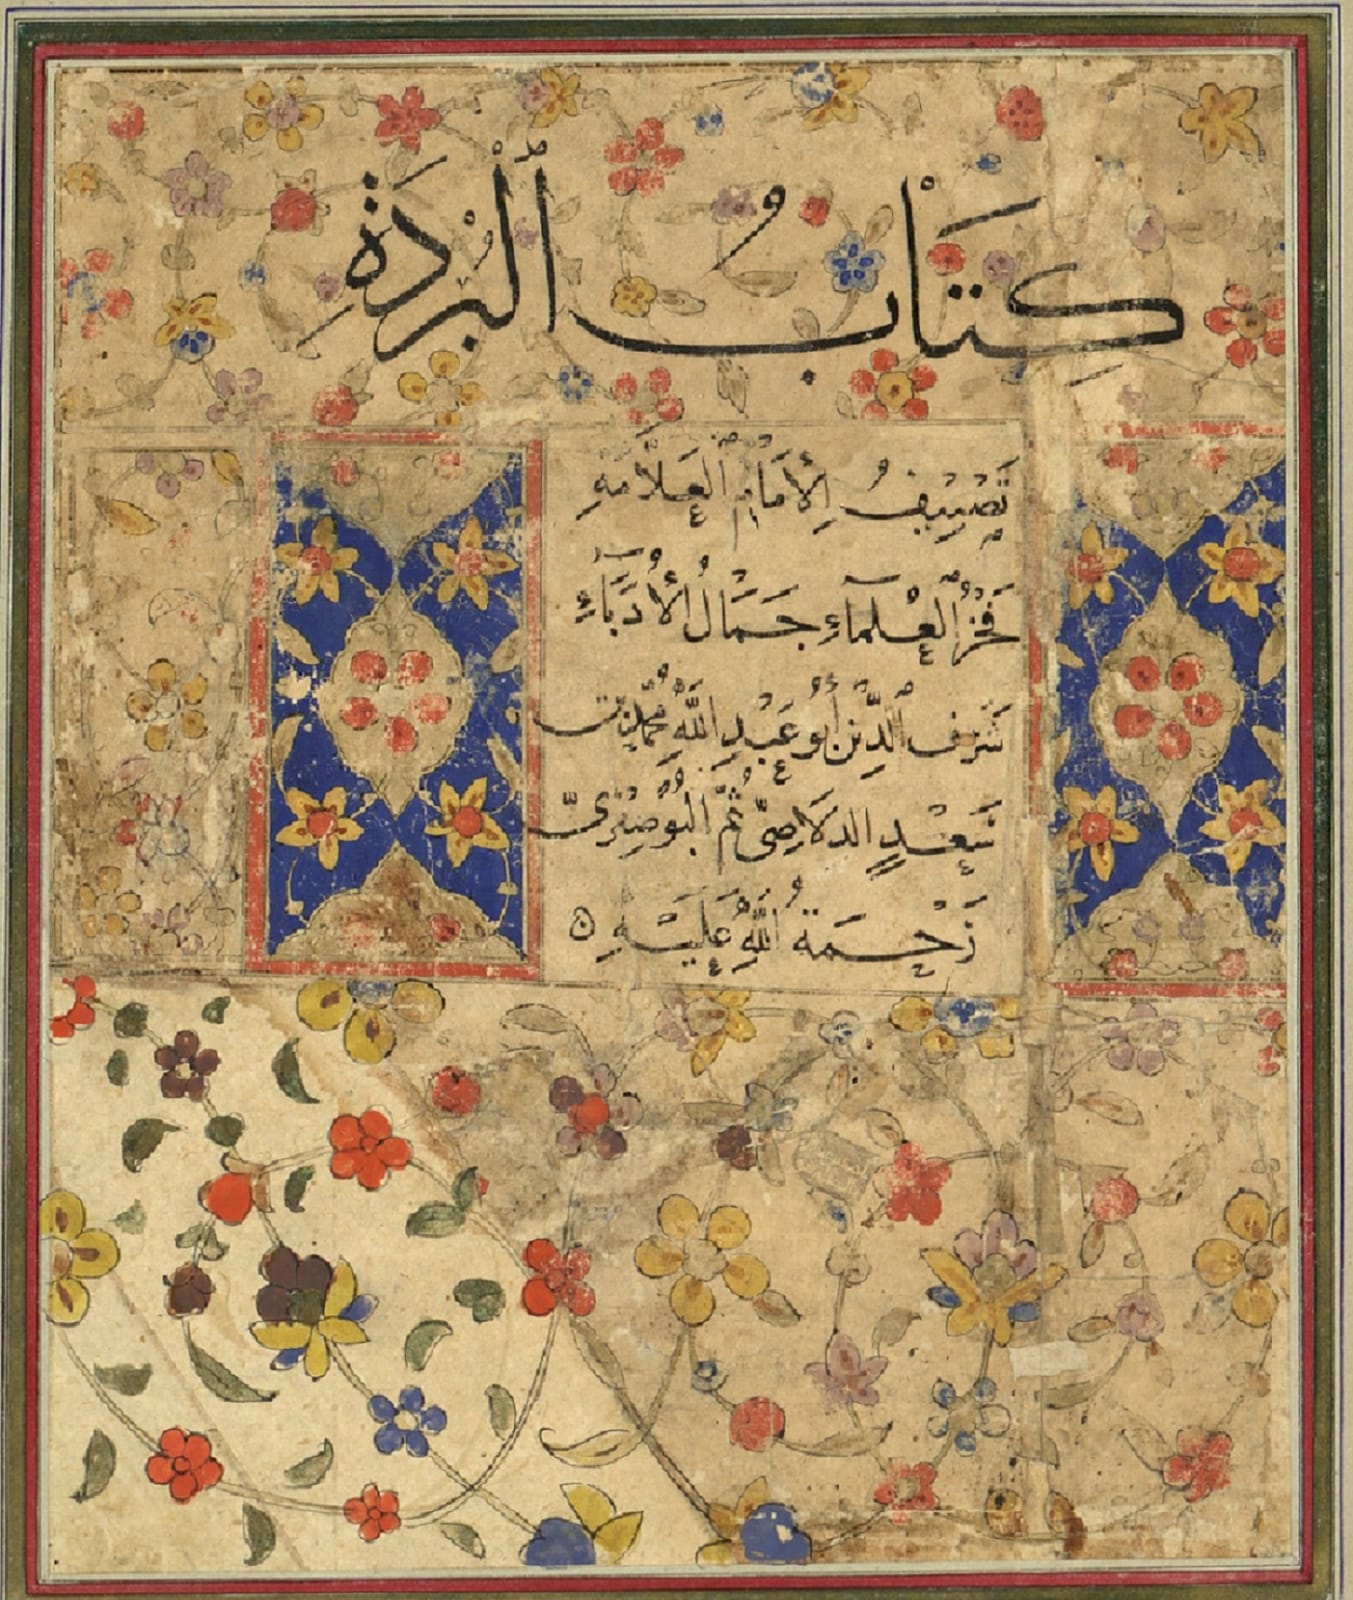 كِتَابُ الْبُرْدَةِ
تَصْنِيفُ الْإِمَامِ الْعَلَّامَةِ
فَخْرُ الْعُلَمَاءِ جَمَالُ الْأُدَبَاءِ
شَرَف الدِّينِ أَبُو عَبْدِ اللَّهِ مُحَمَّد بْن
سَعِيدٍ الدلَاصِيّ ثُمَّ الْبُوصِيرِيّ
رَحْمَةُ اللَّهِ عَلَيْهِ